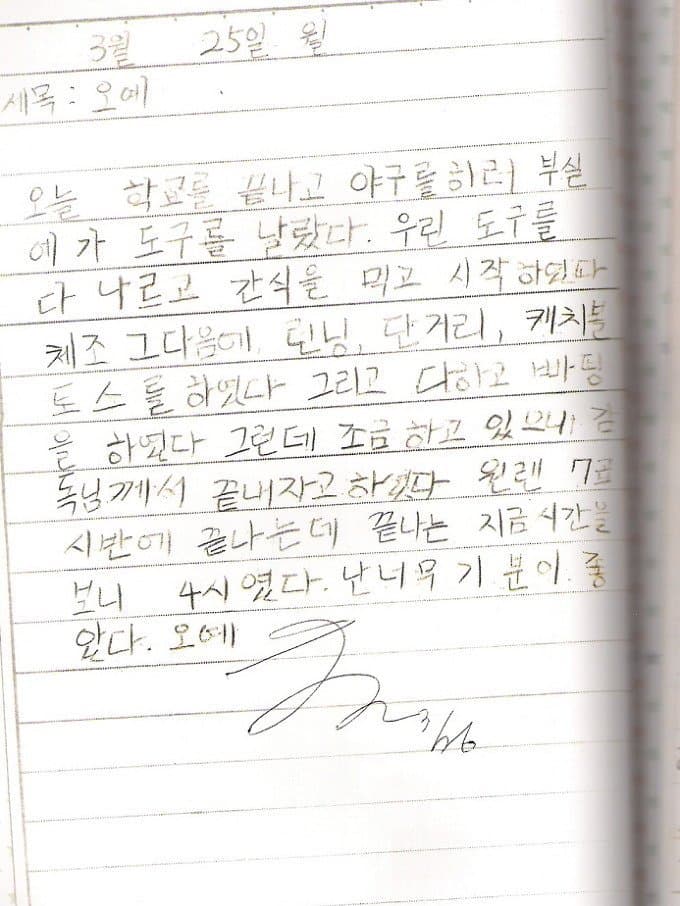 3월 25일 월
세목 : 오예
오늘 학교를 끝나고 야구를하러 부실
에가 도구를 날랐다. 우린 도구를
다 나르고 간식을 먹고 시작하였다
체조 그다음에 런닝, 단거리, 캐치볼
토스를하였다 그리고 다하고 빠팅
을 하였다 그런데 조금하고 있으니 감
독님께서 끝내자고하였다 원랜 7
시반에 끝나는데 끝나는 지금시간을
보니 4시였다. 난너무기분이 좋
았다. 오예
3/26